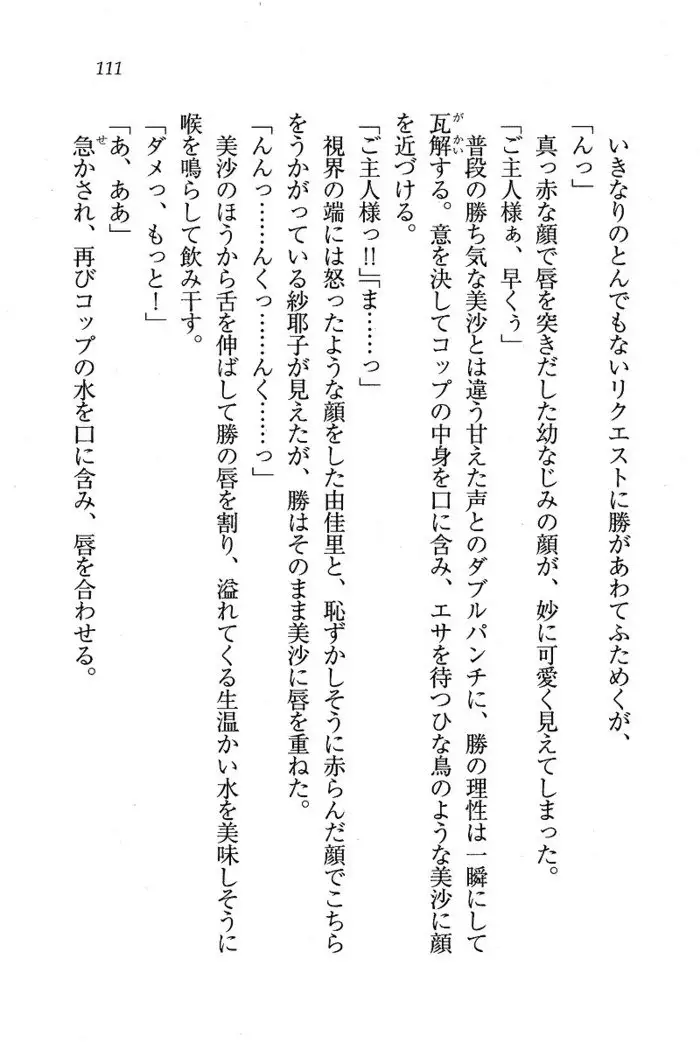 111
いきなりのとんでもないリクエストに勝があわてふためくが、
「んっ」
真っ赤な顔で唇を突きだした幼なじみの顔が、妙に可愛く見えてしまった。
「ご主人様ぁ、早くぅ」
普段の勝ち気な美沙とは違う甘えた声とのダブルパンチに、勝の理性は一瞬にして
瓦解する。意を決してコップの中身を口に含み、エサを待つひな鳥のような美沙に顔
を近づける。
「ご主人様っ!!」「ま……っ」
視界の端には怒ったような顔をした由佳里と、恥ずかしそうに赤らんだ顔でこちら
をうかがっている紗耶子が見えたが、勝はそのまま美沙に唇を重ねた。
「んんっ……んくっ……んく……っ」
美沙のほうから舌を伸ばして勝の唇を割り、溢れてくる生温かい水を美味しそうに
喉を鳴らして飲み干す。
「ダメっ、もっと！」
「あ、ああ」
急かされ、再びコップの水を口に含み、唇を合わせる。